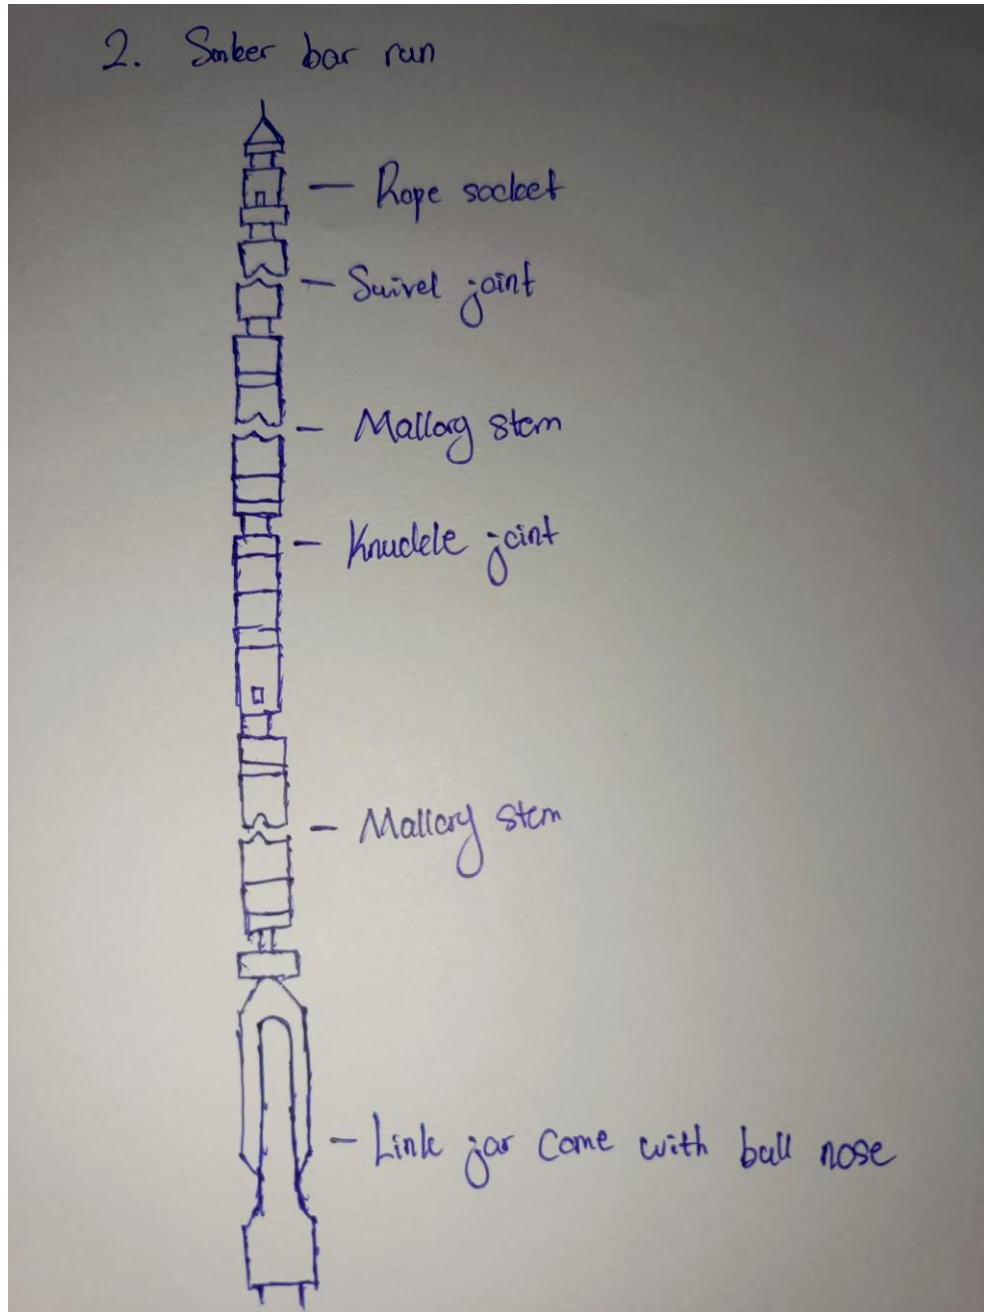 2. Sinker bar run
— Rope socket
— Swivel joint
— Mallory stem
— Knuckle joint
— Mallory stem
— Link jar come with ball nose